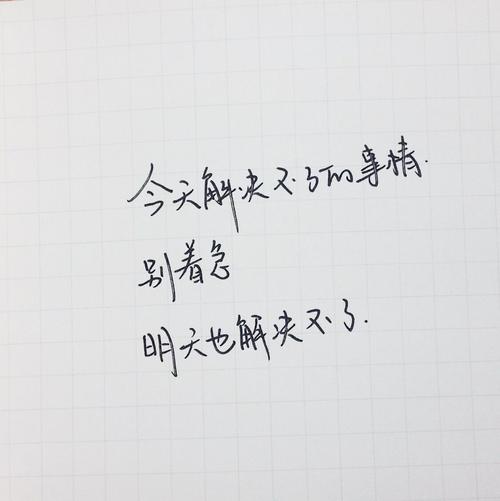 今天解决不了的事情.
别着急
明天也解决不了.